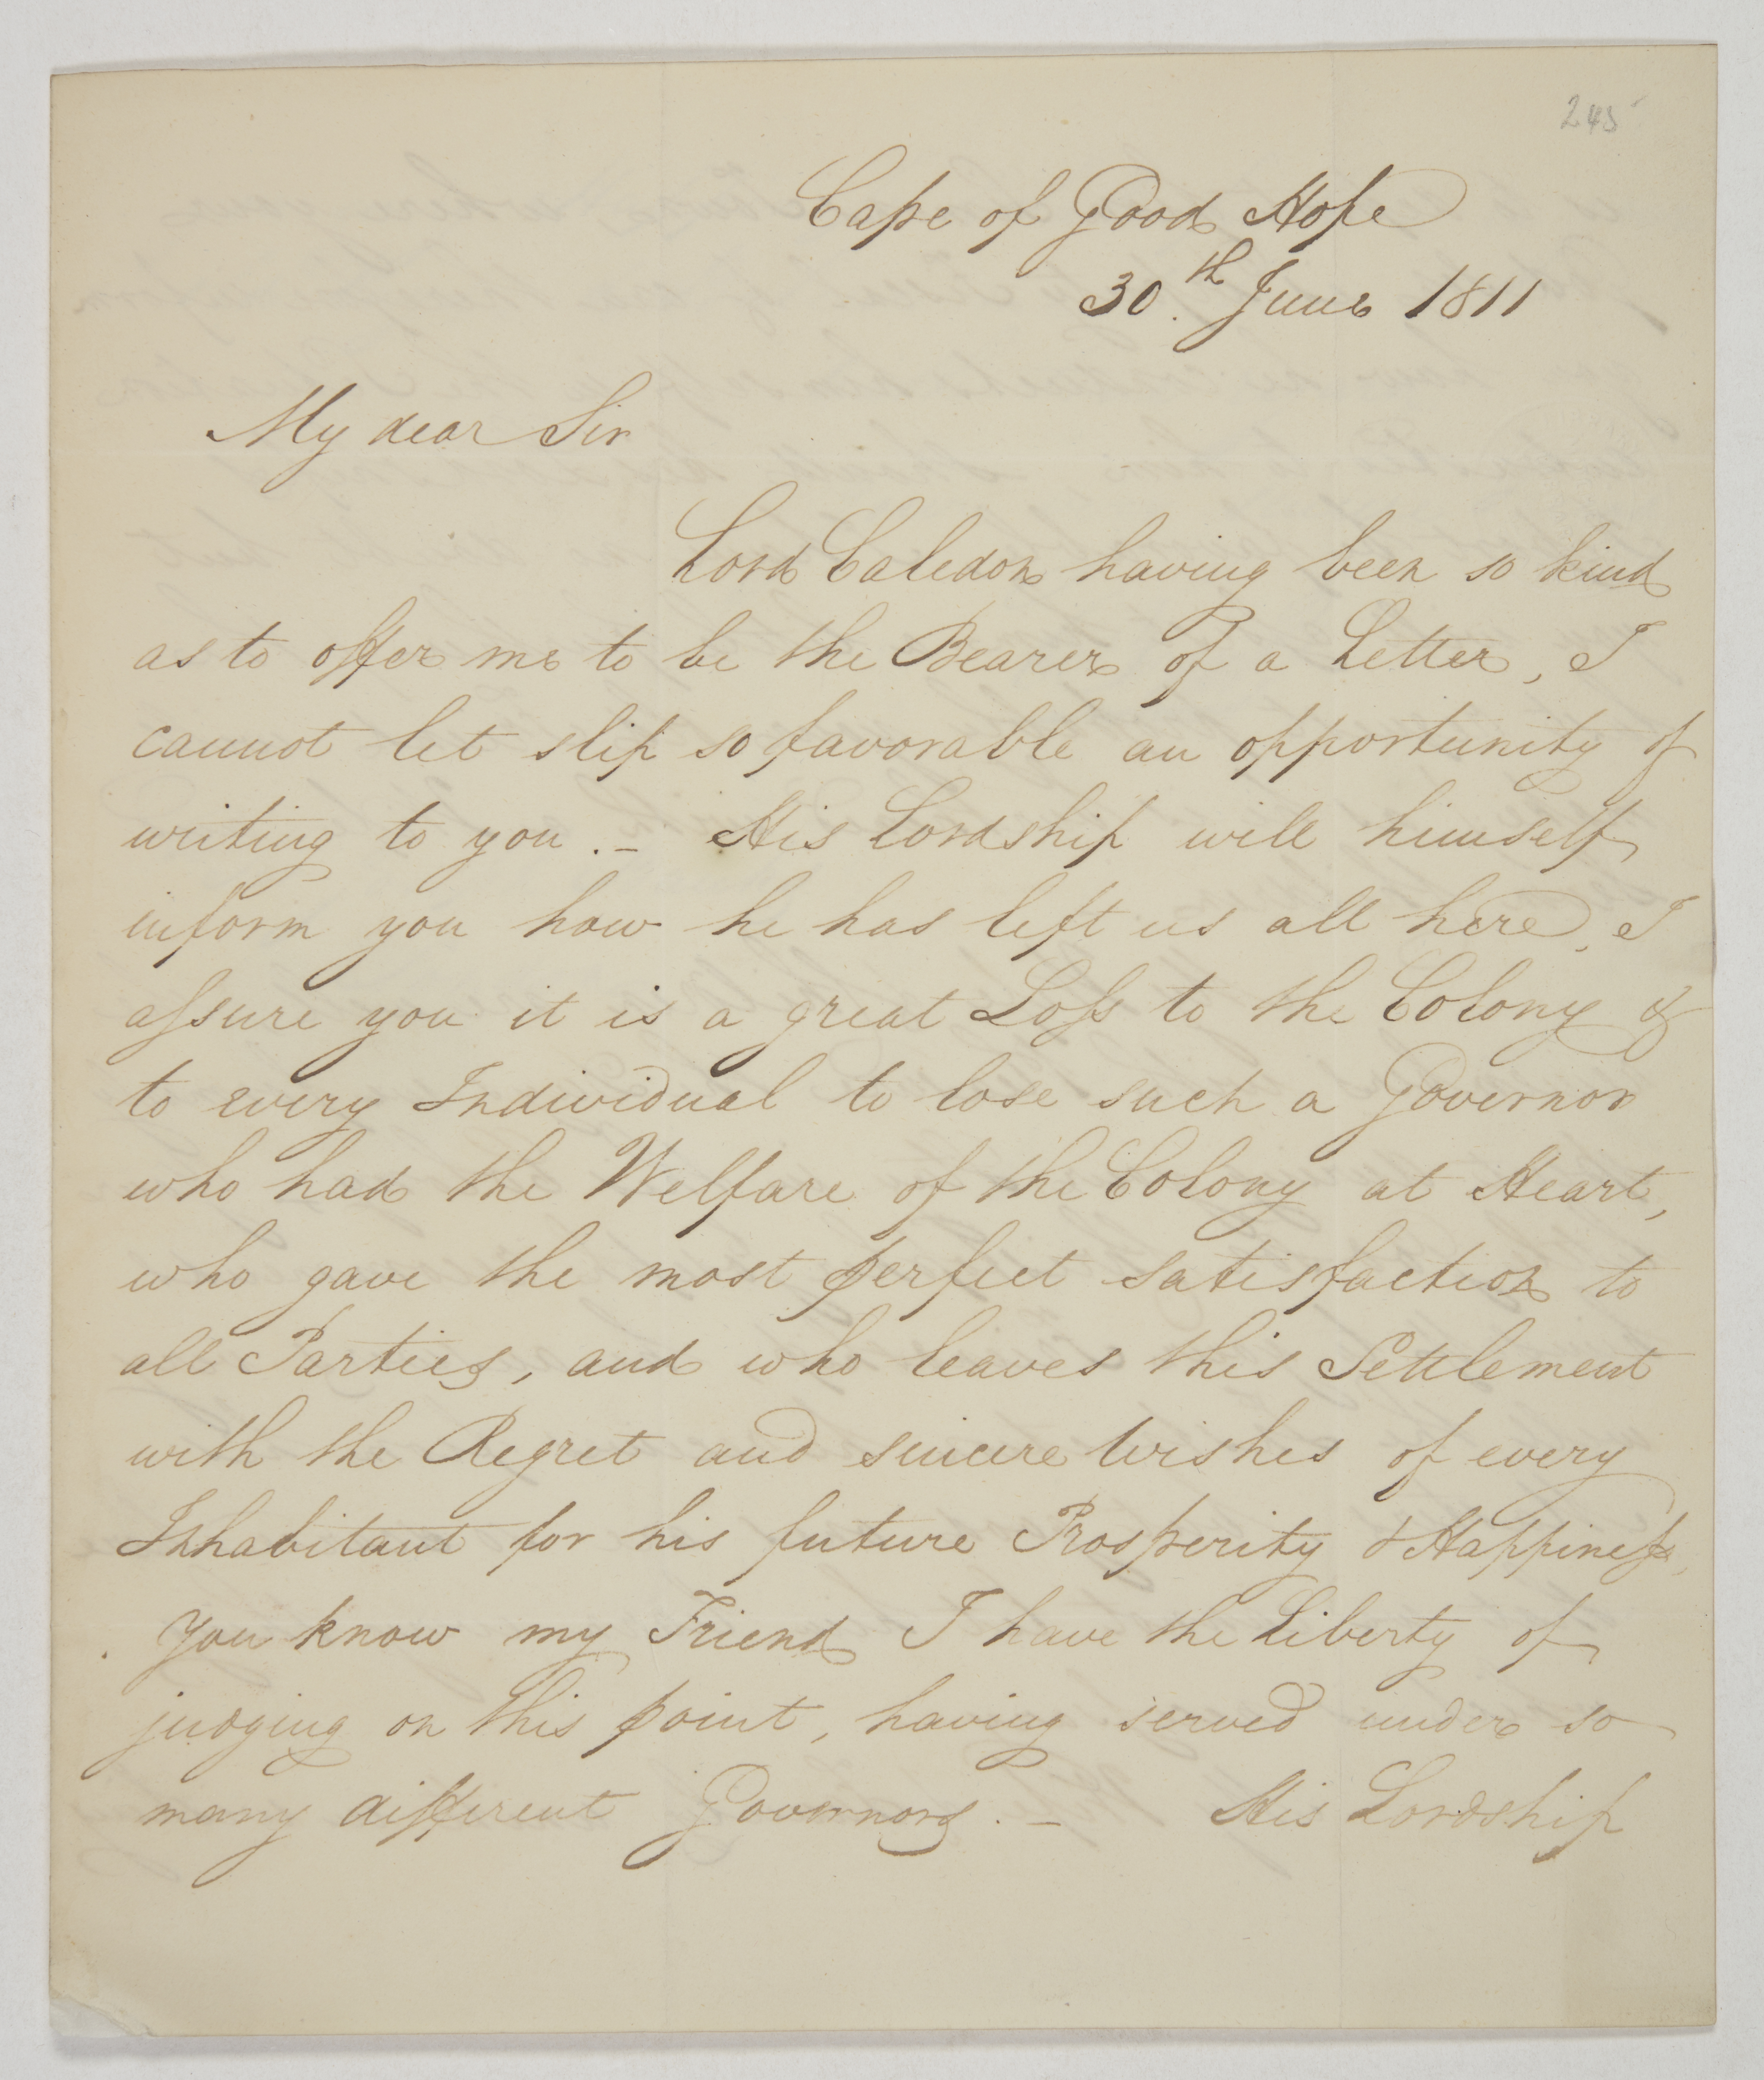 245
Cape of Good Hope
30.th June 1811
My dear Sir
Lord Caledon having been so kind
as to offer me to be the Bearer of a Letter, I
cannot let slip so favorable an opportunity of
writing to you. – His Lordship will himself
inform you how he has left us all here, I
aſsure you it is a great Loſs to the Colony &
to every Individual to lose such a Governor
who had the Welfare of the Colony at Heart,
who gave the most perfect satisfaction to
all Parties, and who leaves this Settlement
with the Regret and sincere Wishes of every
Inhabitant for his future Prosperity & Happineſs.
You know my Friend I have the Liberty of
judging on this point, having served under so
many different Governors. – His Lordship